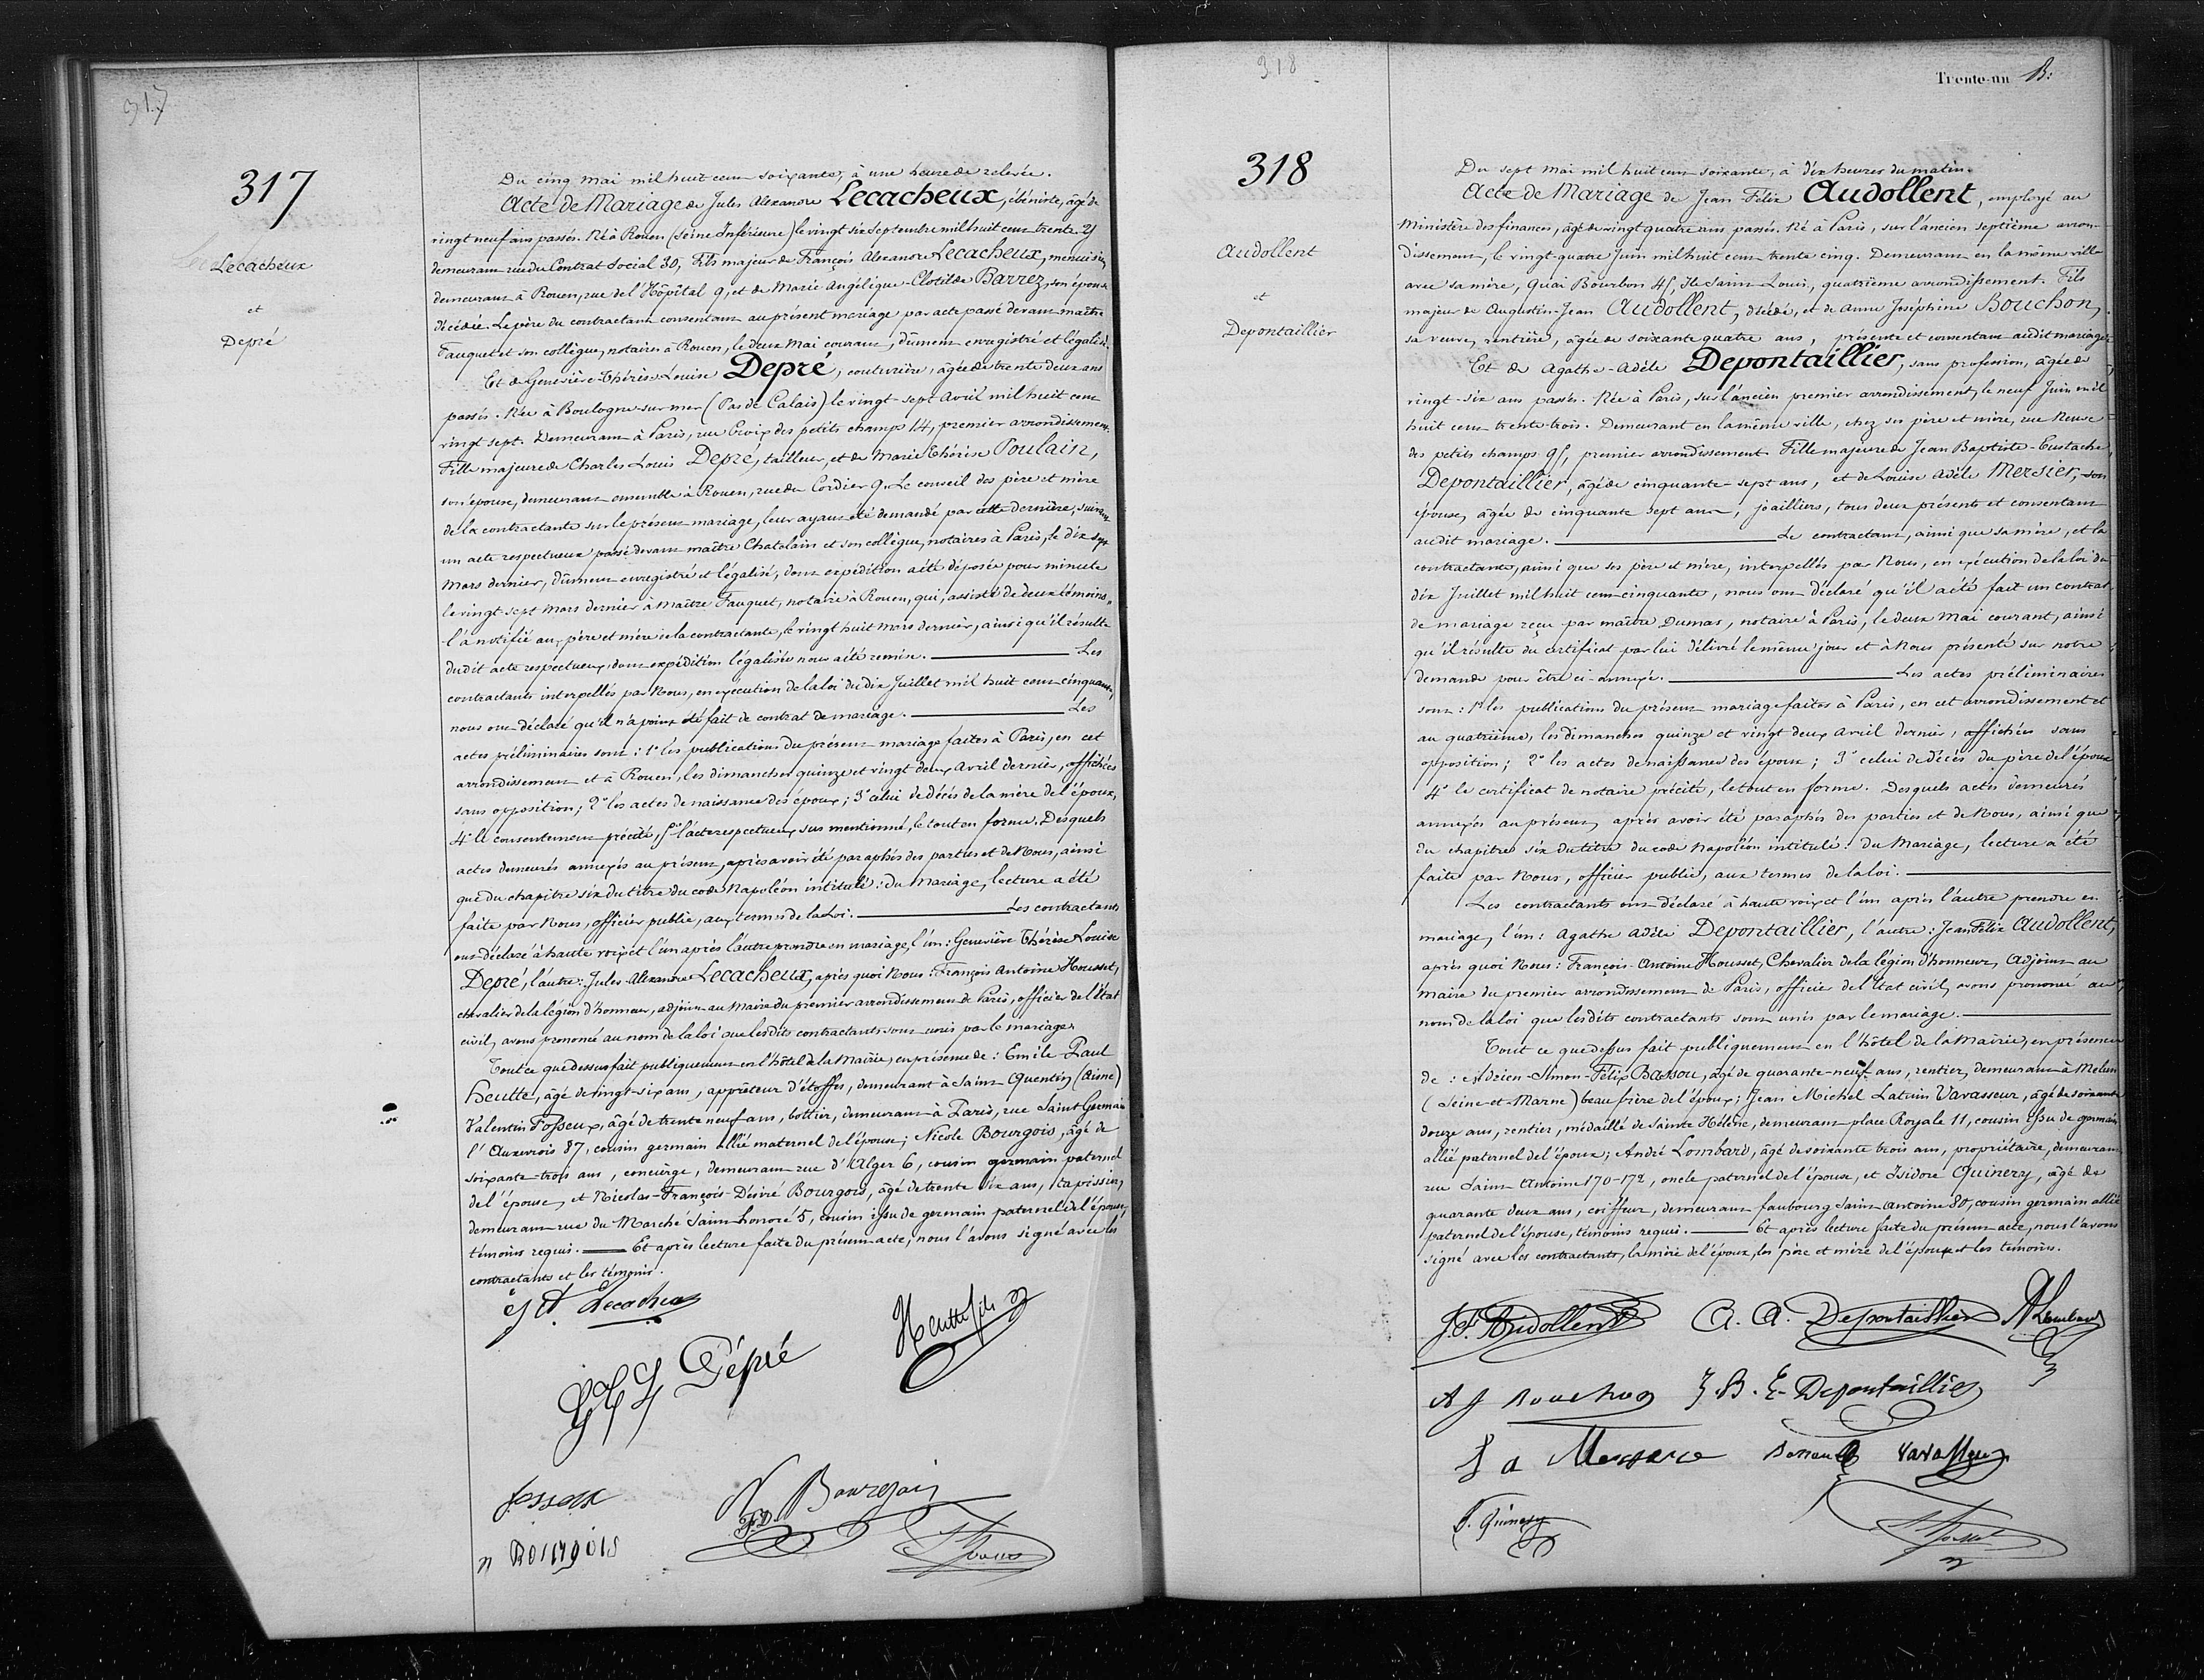 317
317
Lecacheux
et
Depré
Du cinq mai mil huit cent soixante, à une heure de relevée.
Acte de Mariage de Jules Alexandre Lecacheux, ébéniste, âgé de
vingt neuf ans passés. Né à Rouen (Seine Inférieure) le vingt six septembre mil huit cent trente
demeurant rue du Contrat Social 30, Fils majeur de François Alexandre Lecacheux, menuisier,
demeurant à Rouen, rue de l'Hôpital 9, et de Marie Angélique-Clotilde Barrez, son épouse
décédée. Le père du contractant consentant au présent mariage, par acte passé devant maître
Fauquet et son collègue, notaires à Rouen, le deux Mai courant, dûment enregistré et légalisé.
Et de Geneviève-Thérèse Louise Depré, couturière, âgée de trente deux ans
passés. Née à Boulogne-sur-mer (Pas de Calais) le vingt-sept Avril mil huit cent
vingt sept. Demeurant à Paris, rue Croix des petits champs 14, premier arrondissement.
Fille majeure de Charles Louis Depré, tailleur, et de Marie Thérèse Poulain,
son épouse, demeurant ensemble à Rouen, rue du Cordier 9. Le conseil des père et mère
de la contractante sur le présent mariage, leur ayant été demandé par cette dernière, suivant
un acte respectueux passé devant maître Chatelain et son collègue, notaires à Paris, le dix sept
Mars dernier, dûment enregistré et légalisé, dont expédition a été déposée pour minute
le vingt sept Mars dernier à Maître Fauquet, notaire à Rouen, qui, assisté de deux témoins,
l'a notifié aux père et mère de la contractante, le vingt huit Mars dernier, ainsi qu'il résulte
dudit acte respectueux, dont expédition légalisée nous a été remise. Les
contractants interpellés par Nous, en exécution de la loi du dix Juillet mil huit cent cinquante,
nous ont déclaré qu'il n'a point été fait de contrat de mariage. Les
actes préliminaires sont : 1° les publications du présent mariage faites à Paris, en cet
arrondissement et à Rouen, les dimanches quinze et vingt deux Avril dernier, affichées
sans opposition ; 2° les actes de naissance des époux ; 3° celui de décès de la mère de l'époux,
4° le consentement précité, 5° l'acte respectueux sus mentionné, le tout en forme. Desquels
actes demeurés annexés au présent, après avoir été paraphés des parties et de Nous, ainsi
que du chapitre six du titre du code Napoléon intitulé : du Mariage, lecture a été
faite par Nous, officier public, aux termes de la Loi. Les contractants
ont déclaré à haute voix et l'un après l'autre prendre en mariage, l'un : Geneviève Thérèse Louise
Depré, l'autre : Jules-Alexandre Lecacheux, après quoi Nous : François Antoine Housset,
chevalier de la légion d'honneur, adjoint au Maire du premier arrondissement de Paris, officier de l'État
civil, avons prononcé au nom de la loi que lesdits contractants sont unis par le mariage.
Tout ce que dessus fait publiquement en l'hôtel de la Mairie, en présence de : Emile Paul
Heutte, âgé de vingt-six ans, apprêteur d'étoffes, demeurant à Saint Quentin (Aisne)
Valentin Fosseux, âgé de trente neuf ans, bottier, demeurant à Paris, rue Saint Germain
l'Auxerrois 87, cousin germain allié maternel de l'épouse ; Nicole Bourgois, âgé de
soixante-trois ans, concierge, demeurant rue d'Alger 6, cousin germain paternel
de l'épouse, et Nicolas-François-Désiré Bourgois, âgé de trente six ans, tapissier,
demeurant rue du Marché Saint honoré 5, cousin issu de germain paternel de l'épouse,
témoins requis. Et après lecture faite du présent acte, nous l'avons signé avec les
contractants et les témoins.
J A Lecacheux
Heutte fils
G T L Dépré
fosseux
N Bourgois
F. D.
n Bourgois
Housset
318
Trente-un B:
318
Audollent
et
Depontaillier
Du sept mai mil huit cent soixante, à dix heures du matin.
Acte de Mariage de Jean-Félix Audollent, employé au
Ministère des finances, âgé de vingt quatre ans passés. Né à Paris, sur l'ancien septième arron-
dissement, le vingt-quatre Juin mil huit cent trente cinq. Demeurant en la même ville
avec sa mère, Quai Bourbon 45, Ile Saint-Louis, quatrième arrondissement. Fils
majeur de Augustin-Jean Audollent, décédé, et de Anne Joséphine Bouchon,
sa veuve, rentière, âgée de soixante quatre ans, présente et consentant audit mariage.
Et de Agathe-Adèle Depontaillier, sans profession, âgée de
vingt-six ans passés. Née à Paris, sur l'ancien premier arrondissement, le neuf Juin mil
huit cent trente-trois. Demeurant en la même ville, chez ses père et mère, rue Neuve
des petits champs 95, premier arrondissement. Fille majeure de Jean Baptiste-Eustache
Depontaillier, âgé de cinquante-sept ans, et de Louise Adèle Mersier, son
épouse, âgée de cinquante sept ans, joailliers, tous deux présents et consentant
audit mariage. Le contractant, ainsi que sa mère, et la
contractante, ainsi que ses père et mère, interpellés par Nous, en exécution de la loi du
dix Juillet mil huit cent cinquante, nous ont déclaré qu'il a été fait un contrat
de mariage reçu par maître Dumas, notaire à Paris, le deux Mai courant, ainsi
qu'il résulte du certificat par lui délivré le même jour et à Nous présenté sur notre
demande pour être ci-annexé. Les actes préliminaires
sont : 1° les publications du présent mariage faites à Paris, en cet arrondissement et
au quatrième, les dimanches quinze et vingt deux avril dernier, affichées sans
opposition ; 2° les actes de naissance des époux ; 3° celui de décès du père de l'époux
4° le certificat de notaire précité, le tout en forme. Desquels actes demeurés
annexés au présent, après avoir été paraphés des parties et de Nous, ainsi que
du chapitre six du titre du code Napoléon intitulé : du Mariage, lecture a été
faite par Nous, officier public, aux termes de la loi.
Les contractants ont déclaré à haute voix et l'un après l'autre prendre en
mariage, l'un : Agathe Adèle Depontaillier, l'autre : Jean Félix Audollent,
après quoi Nous : François-Antoine Housset, Chevalier de la légion d'honneur, Adjoint au
maire du premier arrondissement de Paris, officier de l'état civil, avons prononcé au
nom de la loi que lesdits contractants sont unis par le mariage.
Tout ce que dessus fait publiquement en l'hôtel de la Mairie, en présence
de : Adrien-Simon-Félix Bassou, âgé de quarante-neuf ans, rentier, demeurant à Melun
(Seine-et-Marne) beau frère de l'époux ; Jean Michel Vavasseur, âgé de soixante
douze ans, rentier, médaillé de Sainte Hélène, demeurant place Royale 11, cousin issu de germain
allié paternel de l'époux ; André Lombard, âgé de soixante trois ans, propriétaire, demeurant
rue Saint Antoine 170-172, oncle paternel de l'épouse, et Isidore Quinery, âgé de
quarante deux ans, coiffeur, demeurant faubourg Saint Antoine 80, cousin germain allié
paternel de l'épouse, témoins requis. Et après lecture faite du présent acte, nous l'avons
signé avec les contractants, la mère de l'époux, les père et mère de l'épouse et les témoins.
J. F. Audollent
A. A. Depontaillier
A Lombard
A J Bouchon
J. B. E. Depontaillier
L a Mersier
Vavasseur
I. Quinery
Housset